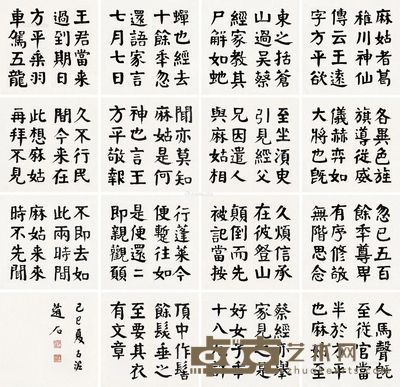 麻姑者葛
稚川神仙
傳云王遠
字方平欲
東之括蒼
山過吳蔡
經家教其
尸解如蛇
蟬也經去
十餘年忽
還語家言
七月七日
王君當來
過到期日
方平乘羽
車駕五龍
各異色旌
旗導從威
儀赫弈如
大將也既
至坐須臾
引見經父
兄因遣人
與麻姑相
聞亦莫知
麻姑是何
神也言王
方平敬報
久不行民
間今來在
此想麻姑
再拜不見
忽已五百
餘年尊卑
有序修敬
無階思念
久煩信承
在彼登山
顛倒而先
被記當按
行蓬萊今
便蹔往如
是便還二
即親觀願
不即去如
此兩時間
麻姑來來
時不先聞
人馬聲既
至從官當
半於方平
也麻姑至
蔡經亦舉
家見之是
好女子年
十八九許
頂中作髻
餘髮垂之
至要其衣
有文章
己巳夏